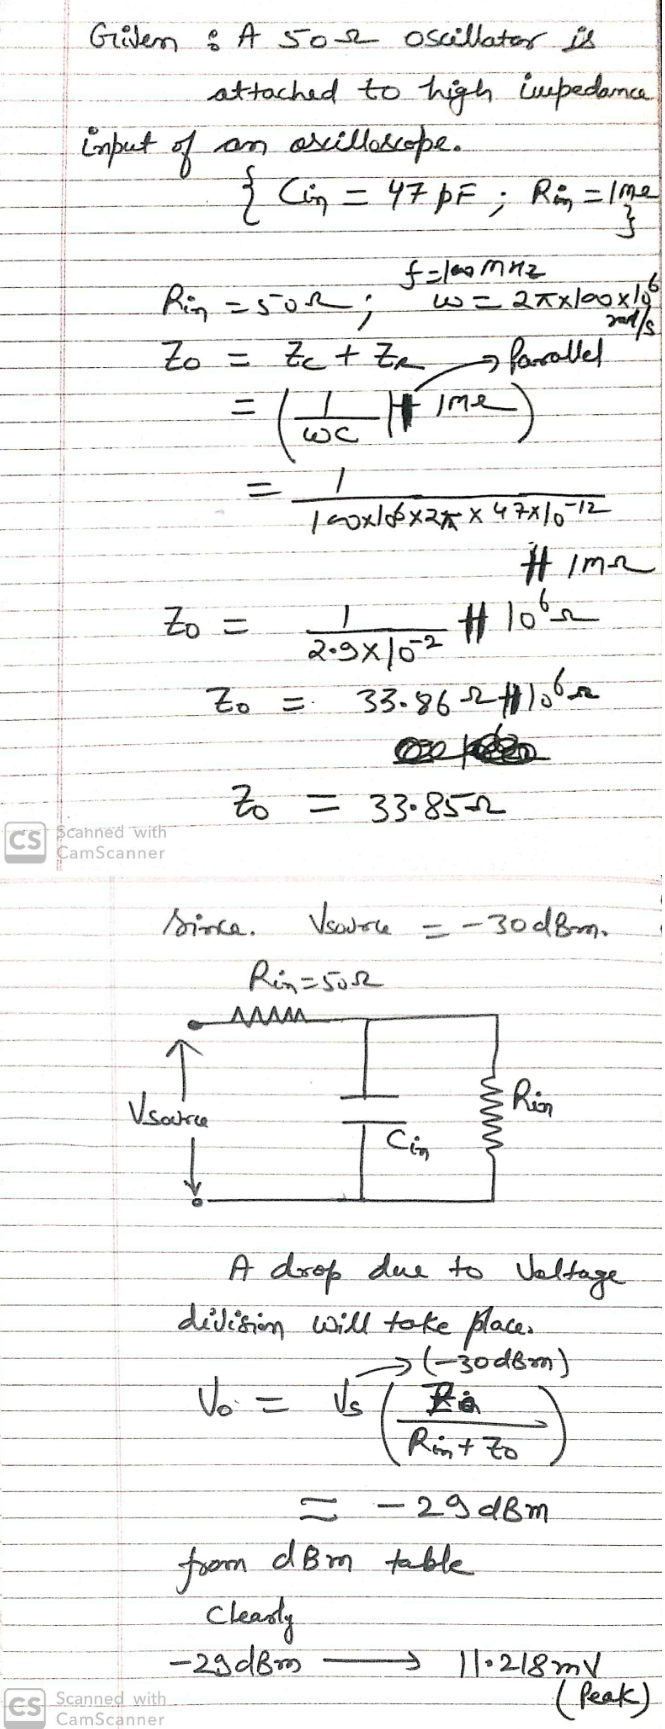 Given : A 50Ω oscillator is
attached to high impedance
input of an oscilloscope.
{ Cin = 47 pF ; Rin = 1MΩ }
f = 100 MHz
Rin = 50Ω ; ω = 2π×100×10⁶ rad/s
Zo = Zc + ZR → Parallel
= ( 1/ωC ∥ 1MΩ )
= 1 / 100×10⁶×2π × 47×10⁻¹²
∥ 1MΩ
Zo = 1 / 2.9×10⁻² ∥ 10⁶Ω
Zo = 33.86 Ω ∥ 10⁶Ω
Zo = 33.85Ω
CS Scanned with
CamScanner
Since. Vsource = -30dBm.
Rin = 50Ω
Vsource
Cin
Rin
A drop due to Voltage
division will take place.
→ (-30dBm)
Vo = Vs ( / Rin + Zo )
= -29dBm
from dBm table
Clearly
-29dBm → 11.218mV
(Peak)
CS Scanned with
CamScanner